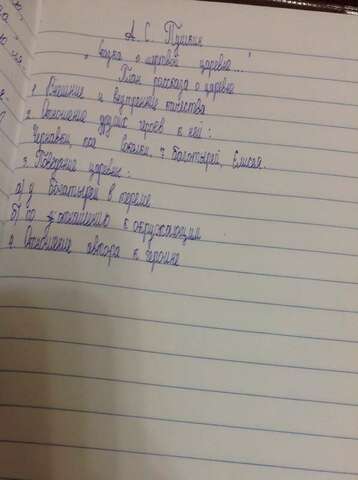 А. С. Пушкин
„ казка о мёртвой царевне..."
План рассказа о царевне
1. Внешния и внутрение качества
2. Отношение других героев к ней:
Чернавки, пса Соколки, 7 богатырей, Елисея.
3. Поведение царевны:
а) у богатырей в тереме
б) по отношению к окружающим
Отношение автора к героине